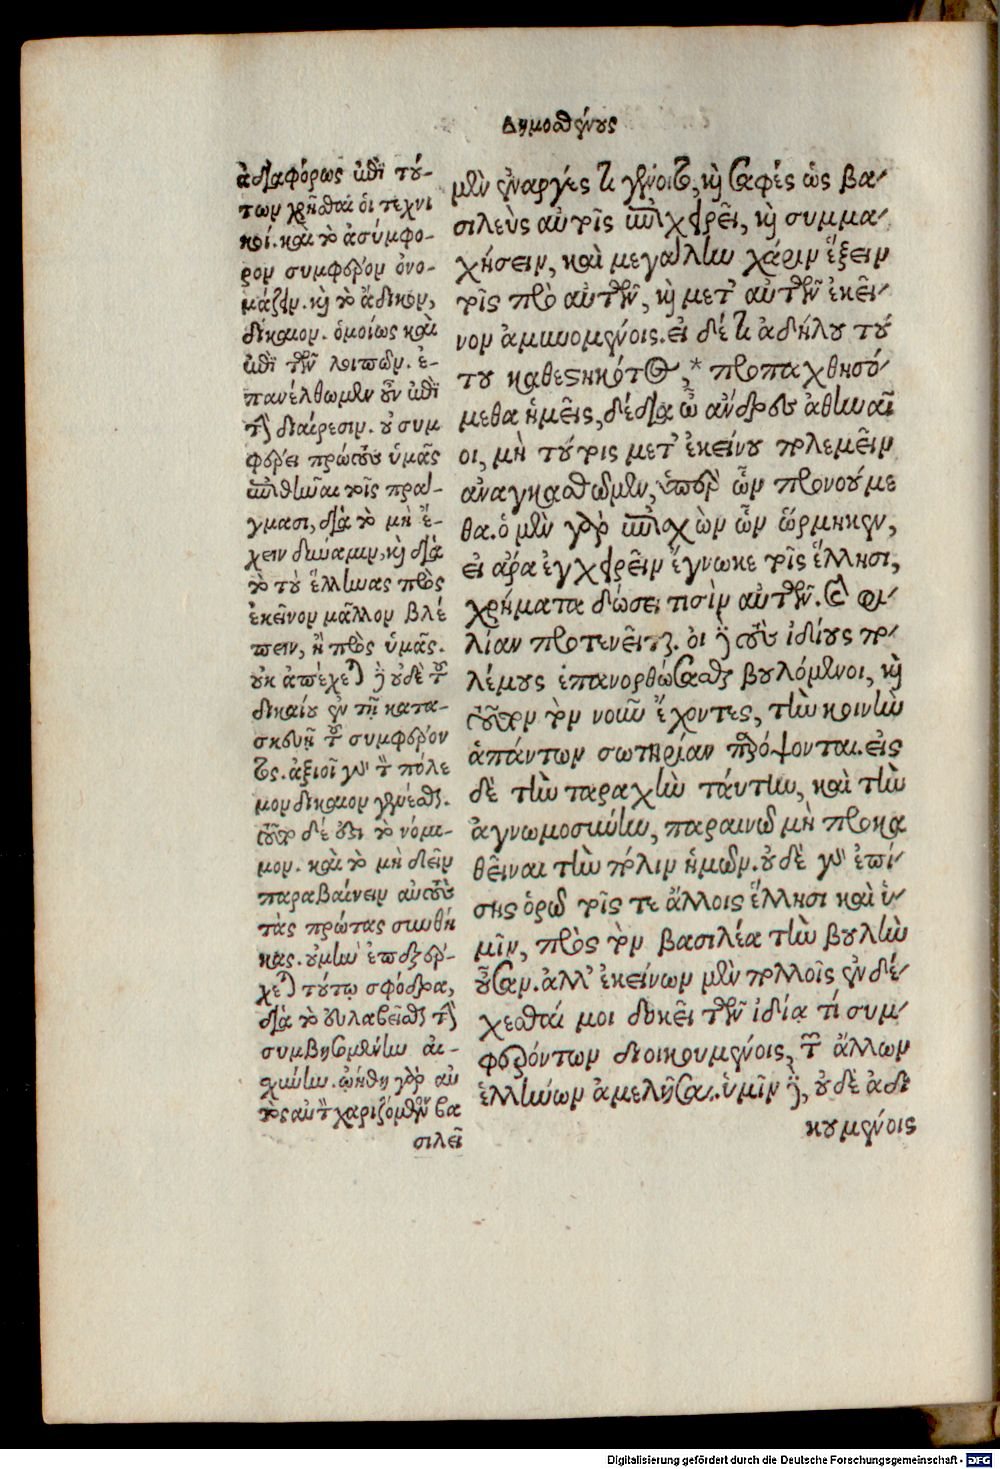 Δημοσθένους
ἀδιαφόρως ἐπὶ τού-
των χρῆσθαι οἱ τεχνι
κοί. καὶ τὸ ἀσύμφο-
ρον συμφέρον ὀνο-
μάζειν. καὶ τὸ ἄδικον,
δίκαιον. ὁμοίως καὶ
ἐπὶ τῶν λοιπῶν. ἐ-
πανέλθωμεν οὖν ἐπὶ
τὴν διαίρεσιν. οὐ συμ
φέρει πρώτους ὑμᾶς
ἐπιθεῖναι τοῖς πρά-
γμασι, διὰ τὸ μὴ ἔ-
χειν δύναμιν, καὶ διὰ
τὸ τοὺς ἕλληνας πρὸς
ἐκεῖνον μᾶλλον βλέ
πειν, ἢ πρὸς ὑμᾶς.
οὐκ ἀπέχεται δὲ οὐδὲ τοῦ
δικαίου ἐν τῇ κατα-
σκευῇ τοῦ συμφέρον
τος. ἀξιοῖ γὰρ τὸν πόλε
μον δίκαιον γενέσθαι.
τοῦτο δέ ἐστι τὸ νόμι-
μον. καὶ τὸ μὴ δεῖν
παραβαίνειν αὐτοὺς
τὰς πρώτας συνθή
κας. οὐ μὴν ἐπεξέρ-
χεται τούτῳ σφόδρα,
διὰ τὸ εὐλαβεῖσθαι τὴν
συμβησομένην αἰ-
σχύνην. ᾠήθη γὰρ αὐ
τὸς αὐτὸν χαριζόμενον βα
σιλεῖ
μὲν ἐναργές τι γένοιτο, καὶ σαφὲς ὡς βα-
σιλεὺς αὐτοῖς ἐπιχειρεῖ, καὶ συμμα-
χήσειν, καὶ μεγάλην χάριν ἕξειν
τοῖς πρὸ αὐτῶν, καὶ μετ' αὐτῶν ἐκεῖ-
νον ἀμυνομένοις. εἰ δ' ἔτι ἀδήλου τού
του καθεστηκότος, * προπαχθησό-
μεθα ἡμεῖς, δέδια ὦ ἄνδρες ἀθηναῖ
οι, μὴ τούτοις μετ' ἐκείνου πολεμεῖν
ἀναγκασθῶμεν, ὑπὲρ ὧν προνοούμε
θα. ὁ μὲν γὰρ ἐπισχὼν ὧν ὥρμηκεν,
εἰ ἄρα ἐγχειρεῖν ἔγνωκε τοῖς ἕλλησι,
χρήματα δώσει τισὶν αὐτῶν. καὶ φι-
λίαν προτενεῖται. οἱ δὲ τοὺς ἰδίους πο-
λέμους ἐπανορθῶσαι βουλόμενοι, καὶ
τοῦτον τὸν νοῦν ἔχοντες, τὴν κοινὴν
ἁπάντων σωτηρίαν παρόψονται. εἰς
δὲ τὴν ταραχὴν ταύτην, καὶ τὴν
ἀγνωμοσύνην, παραινῶ μὴ προκα
θεῖναι τὴν πόλιν ἡμῶν. οὐδὲ γὰρ ἐπί-
σης ὁρῶ τοῖς τε ἄλλοις ἕλλησι καὶ ὑ-
μῖν, πρὸς τὸν βασιλέα τὴν βουλὴν
οὖσαν. ἀλλ' ἐκείνων μὲν πολλοῖς ἐνδέ-
χεσθαί μοι δοκεῖ τῶν ἰδίᾳ τί συμ-
φερόντων διοικουμένοις, τῶν ἄλλων
ἑλλήνων ἀμελῆσαι. ὑμῖν δὲ, οὐδὲ ἀδι
κουμένοις
Digitalisierung gefördert durch die Deutsche Forschungsgemeinschaft - DFG